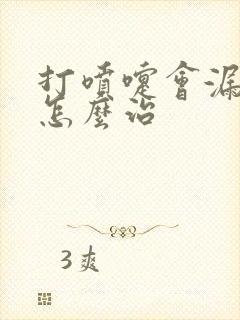 打噴嚏會漏
怎麼治
3爽